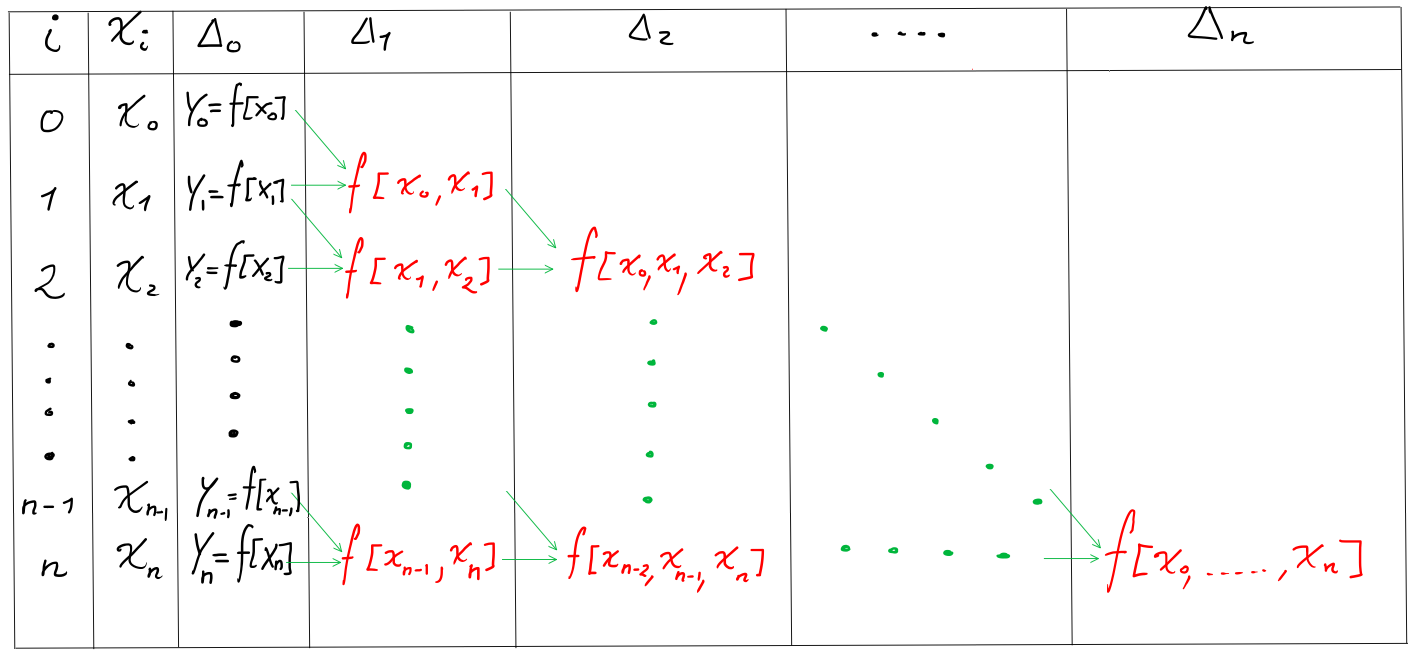 i xᵢ Δ₀ Δ₁ Δ₂ .... Δₙ
0 x₀ Y₀=f[x₀]
1 x₁ Y₁=f[x₁] f[x₀,x₁]
2 x₂ Y₂=f[x₂] f[x₁,x₂] f[x₀,x₁,x₂]
n-1 xₙ₋₁ Yₙ₋₁=f[xₙ₋₁]
n xₙ Yₙ=f[xₙ] f[xₙ₋₁,xₙ] f[xₙ₋₂,xₙ₋₁,xₙ] f[x₀,......,xₙ]